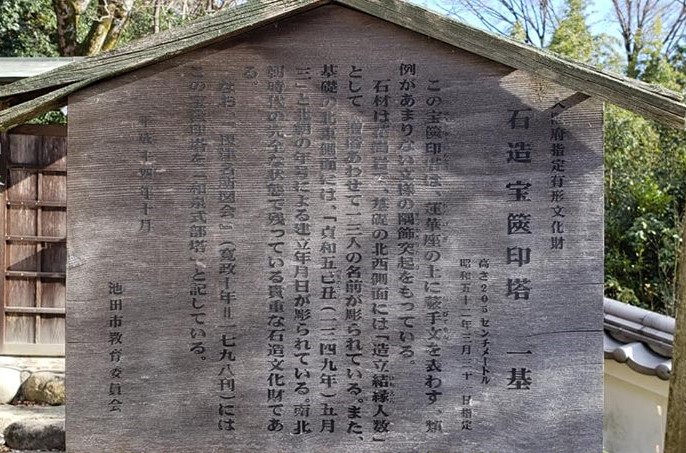 大阪府指定有形文化財
石造宝篋印塔 一基
高さ205センチメートル
昭和五十二年三月三十一日指定
この宝篋印塔は、蓮華座の上に 手 を表わす、類
例があまりない文様の隅飾突起をもっている。
石材は花崗岩で、基礎の北西側面には「造立結縁人数」
として 僧俗あわせて一三人の名前が彫られている。また、
基礎の北東側面には、「貞和五己丑(一三四九年)五月
三」と北朝の年号による建立年月日が彫られている。南北
朝時代の完全な状態で残っている貴重な石造文化財であ
る。
なお 「摂津名所図会」(寛政十年＝一七九八刊)には
この宝篋印塔を「和泉式部塔」と記している。
平成十四年十月
池田市教育委員会